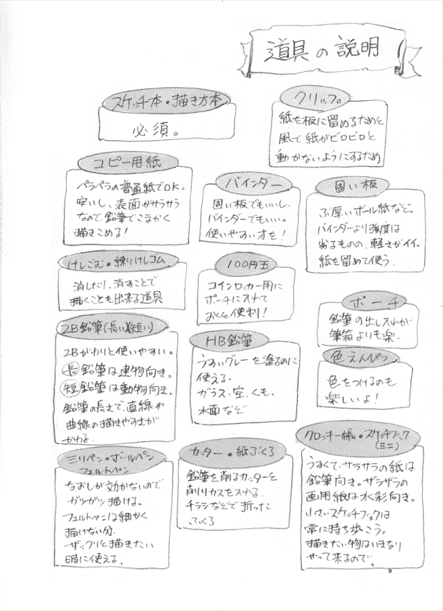 道具の説明
スケッチ本・描き方本
必須。
クリップ
紙を板に留めるためと
風で紙がピロピロと
動かないようにするため
コピー用紙
ペラペラの普通紙でOK。
安いし、表面がサラサラ
なので、鉛筆でこまかく
描きこめる!
バインダー
固い板でもいいし、
バインダーでもいい。
使いやすい方を!
固い板
ぶ厚いボール紙など。
バインダーより強度は
劣るものの、軽さがイイ。
紙を留めて使う。
けしごむ・練りけしゴム
消したり、消すことで
描くことも出来る道具
100円玉
コインロッカー用に
ポーチに入れて
おくと便利!
ポーチ
鉛筆の出し入れが
筆箱よりも楽。
2B鉛筆(長い)(短い)
2Bがわりと使いやすい。
長鉛筆は建物向き。
短鉛筆は動物向き。
鉛筆の長さで、直線や
曲線の描きやすさが
かわる。
HB鉛筆
うすいグレーを塗るのに
使える。
ガラス、空、くも、
水面など
色えんぴつ
色をつけるのも
楽しいよ!
ミリペン・ボールペン
フェルトペン
なおしが効かないので
ガツガツ描ける。
フェルトペンは細かく
描けない分、
ザックリと描きたい
時に使える。
カッター・紙ぶくろ
鉛筆を削るカッターと
削りカスを入れる、
チラシなどで折った
ふくろ
クロッキー帳・スケッチブック
(ミニ)
うすくて、サラサラの紙は
鉛筆向き。ザラザラの
画用紙は水彩向き。
小さいスケッチブックは
常に持ち歩こう。
描きたい物はいきなり
やって来るので。
9